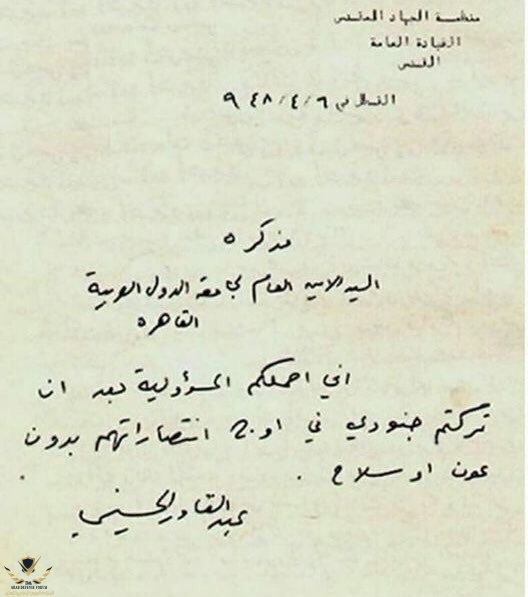 منظمة الجهاد المقدس
القيادة العامة
القدس
القدس في ٦ / ٤ / ٩٤٨
مذكره
السيد الامين العام لجامعة الدول العربية
القاهره
اني احملكم المسؤولية بعد ان
تركتم جنودي في اوج انتصاراتهم بدون
عون او سلاح .
عبد القادر الحسيني
ARAB DEFENSE FORUM